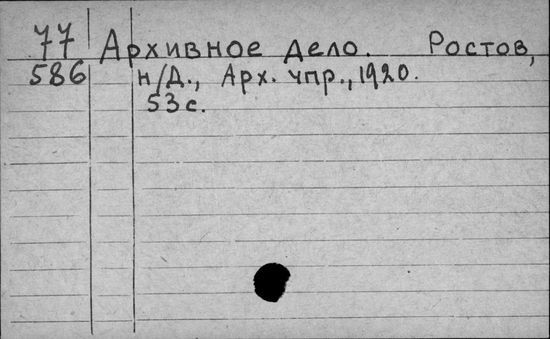 77 Архивное дело. Ростов,
586 н/Д., Арх. чпр., 1920.
53 с.